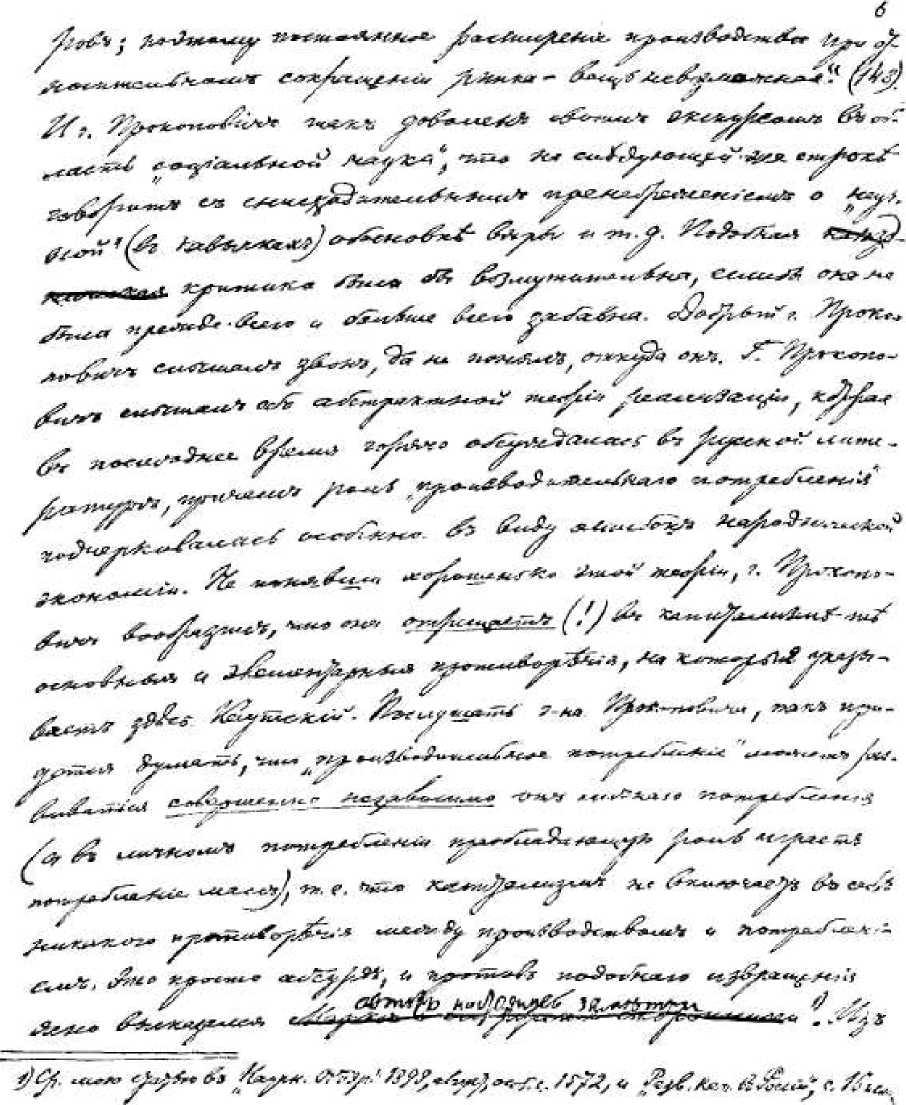 6
ровъ; поэтому постоянное расширеніе производства при от-
носительномъ сокращеніи рынка – вещь невозможная." (143).
И г. Прокоповичъ такъ доволенъ своимъ экскурсомъ въ об-
ласть „соціальной науки", что на слѣдующей же строкѣ
говоритъ съ снисходительнымъ пренебреженіемъ о „науч-
ной" (въ кавычкахъ) обосновкѣ вѣры и т. д. Подобная
критика была бы возмутительна, если бы она не
была прежде всего и больше всего забавна. Добрый г. Проко-
повичъ слышалъ звонъ, да не понялъ, откуда онъ. Г. Прокопо-
вичъ слышалъ объ абстрактной теоріи реализаціи, которая
въ последнее время горячо обсуждалась въ русской лите-
ратурѣ, причемъ роль „производительнаго потребленія"
подчеркивалась особенно въ виду ошибокъ народнической
экономіи. Не понявши хорошенько этой теоріи, г. Прокопо-
вичъ вообразилъ, что она отрицаетъ (!) въ капитализмѣ тѣ
основныя и элементарныя противорѣчія, на которыя указы-
ваетъ здѣсь Каутскій. Послушать г-на Прокоповича, такъ при-
дется думать, что „производительное потребленіе" можетъ раз-
виваться совершенно независимо отъ личнаго потребленія
(а въ личномъ потребленіи преобладающую роль играетъ
потребленіе массъ), т. е. что капитализмъ не включаетъ въ себѣ
никакого противорѣчія между производствомъ и потреблені-
емъ. Это просто абсурдъ, и противъ подобнаго извращенія
авторъ настоящей замѣтки
ясно высказался ¹). Изъ
1) Ср. мою статью въ „Научн. Обозр." 1899, август, с. 1572, и „Разв. кап. въ Россіи", с. 16